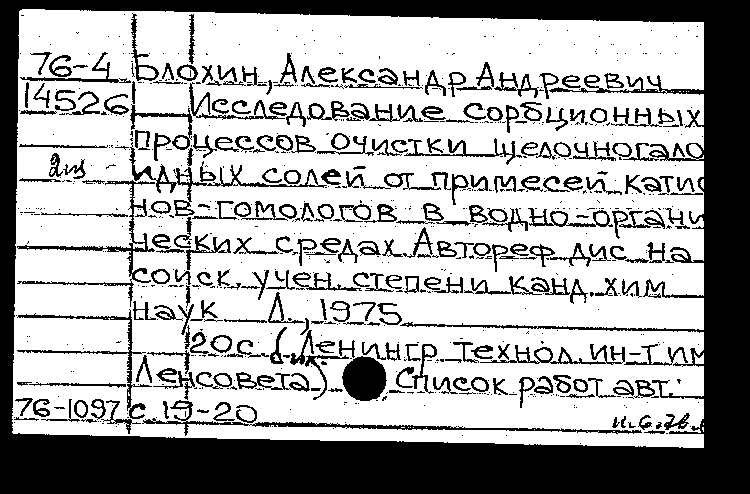 76-4 Блохин, Александр Андреевич
14526 Исследование сорбционных
процессов очистки щелочногало
2 идных солей от примесей катио
нов-гомологов в водно-органи
ческих средах. Автореф дис на
соиск. учен. степени канд. хим
наук Л., 1975
20с (Ленингр технол. ин-т им
Ленсовета) Список работ авт.:
76-1097 с 19-20